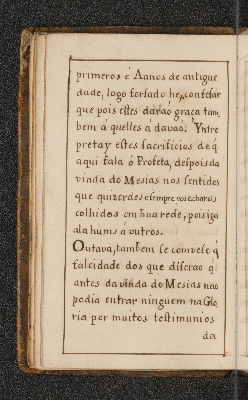 primeros é Aanos de antigue
dade, logo forsado he, confesar
que pois estes davaõ graca tam
bem á quelles á davaõ. Yntre
pretay estes sacrificios de q̃
aqui fala ó Profeta, despois da
vinda do Mesias nos sentidos
que quizerdes e sempre vos achareis
colhidos em hua rede, pois ig
ala huns á outros.
Outava, tambem se convele q̃
falcidade dos que diserao q̃
antes da vinda do Mesias naõ
podia entrar ninguem na Glo
ria por muitos testimunios
da